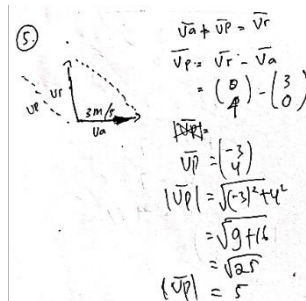 5.
Vr
Vp
3m/s
Va
V̅a + V̅p = V̅r
V̅p = V̅r - V̅a
= (0 4) - (3 0)
|V̅p| =
V̅p = (-3 4)
|V̅p| = √(-3)²+4²
= √9+16
= √25
|V̅p| = 5